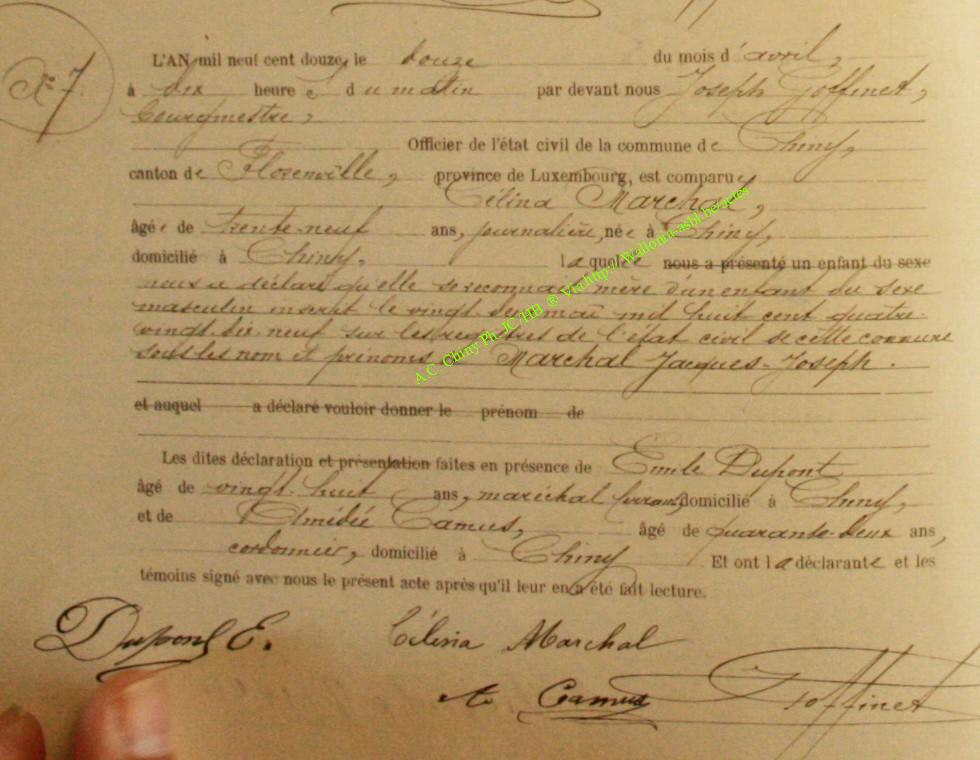 N° 7
L'AN mil neuf cent douze, le douze du mois d'avril,
à dix heures du matin par devant nous Joseph Goffinet,
bourgmestre,
Officier de l'état civil de la commune de Chiny,
canton de Florenville, province de Luxembourg, est comparue
Célina Marchal,
âgée de trente-neuf ans, journalière, née à Chiny,
domicilié à Chiny, laquelle nous a présenté un enfant du sexe
nous a déclaré qu'elle se reconnait mère d'un enfant du sexe
masculin inscrit le vingt-deux mai mil huit cent quatre-
vingt-dix-neuf sur les registres de l'état civil de cette commune
sous les nom et prénoms de Marchal Jacques-Joseph.
et auquel a déclaré vouloir donner le prénom de
Les dites déclaration et présentation faites en présence de Emile Dupont
âgé de vingt-huit ans, maréchal ferrant domicilié à Chiny,
et de Amédée Camus, âgé de quarante-deux ans,
cordonnier, domicilié à Chiny Et ont la déclarante et les
témoins signé avec nous le présent acte après qu'il leur en a été fait lecture.
Dupont E. Célina Marchal
A. Camus Goffinet
A.C. Chiny Ph. JC/HB ® Via http://Wallonia-asbl.be/actes